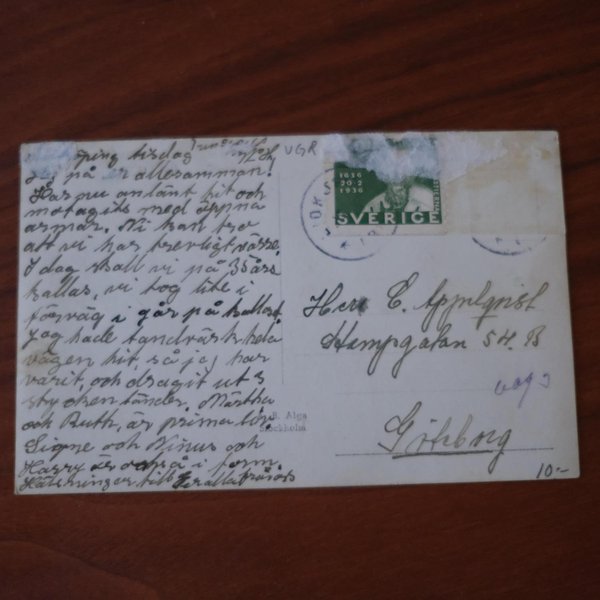 ping tisdag
Hej på er allesamman.
Har nu anlänt hit och
motagits med öppna
armar. Ni kan tro
att vi har trevligt värre.
I dag skall vi på 35 års
kallas, vi tog lite i
förväg i går på kallaset
Jag hade tandvärk hela
vägen hit, så jag har
varit, och dragit ut 3
stycken tänder. Märtha
och Ruth, är prima
Signe och Ninus och
Harry är också i form.
Hälsningar till Er alla från oss
VGR
1636
20·2
1936
SVERIGE
Herr E. Applqvist
54. B
Göteborg
B. Alga
Stockholm
10:-